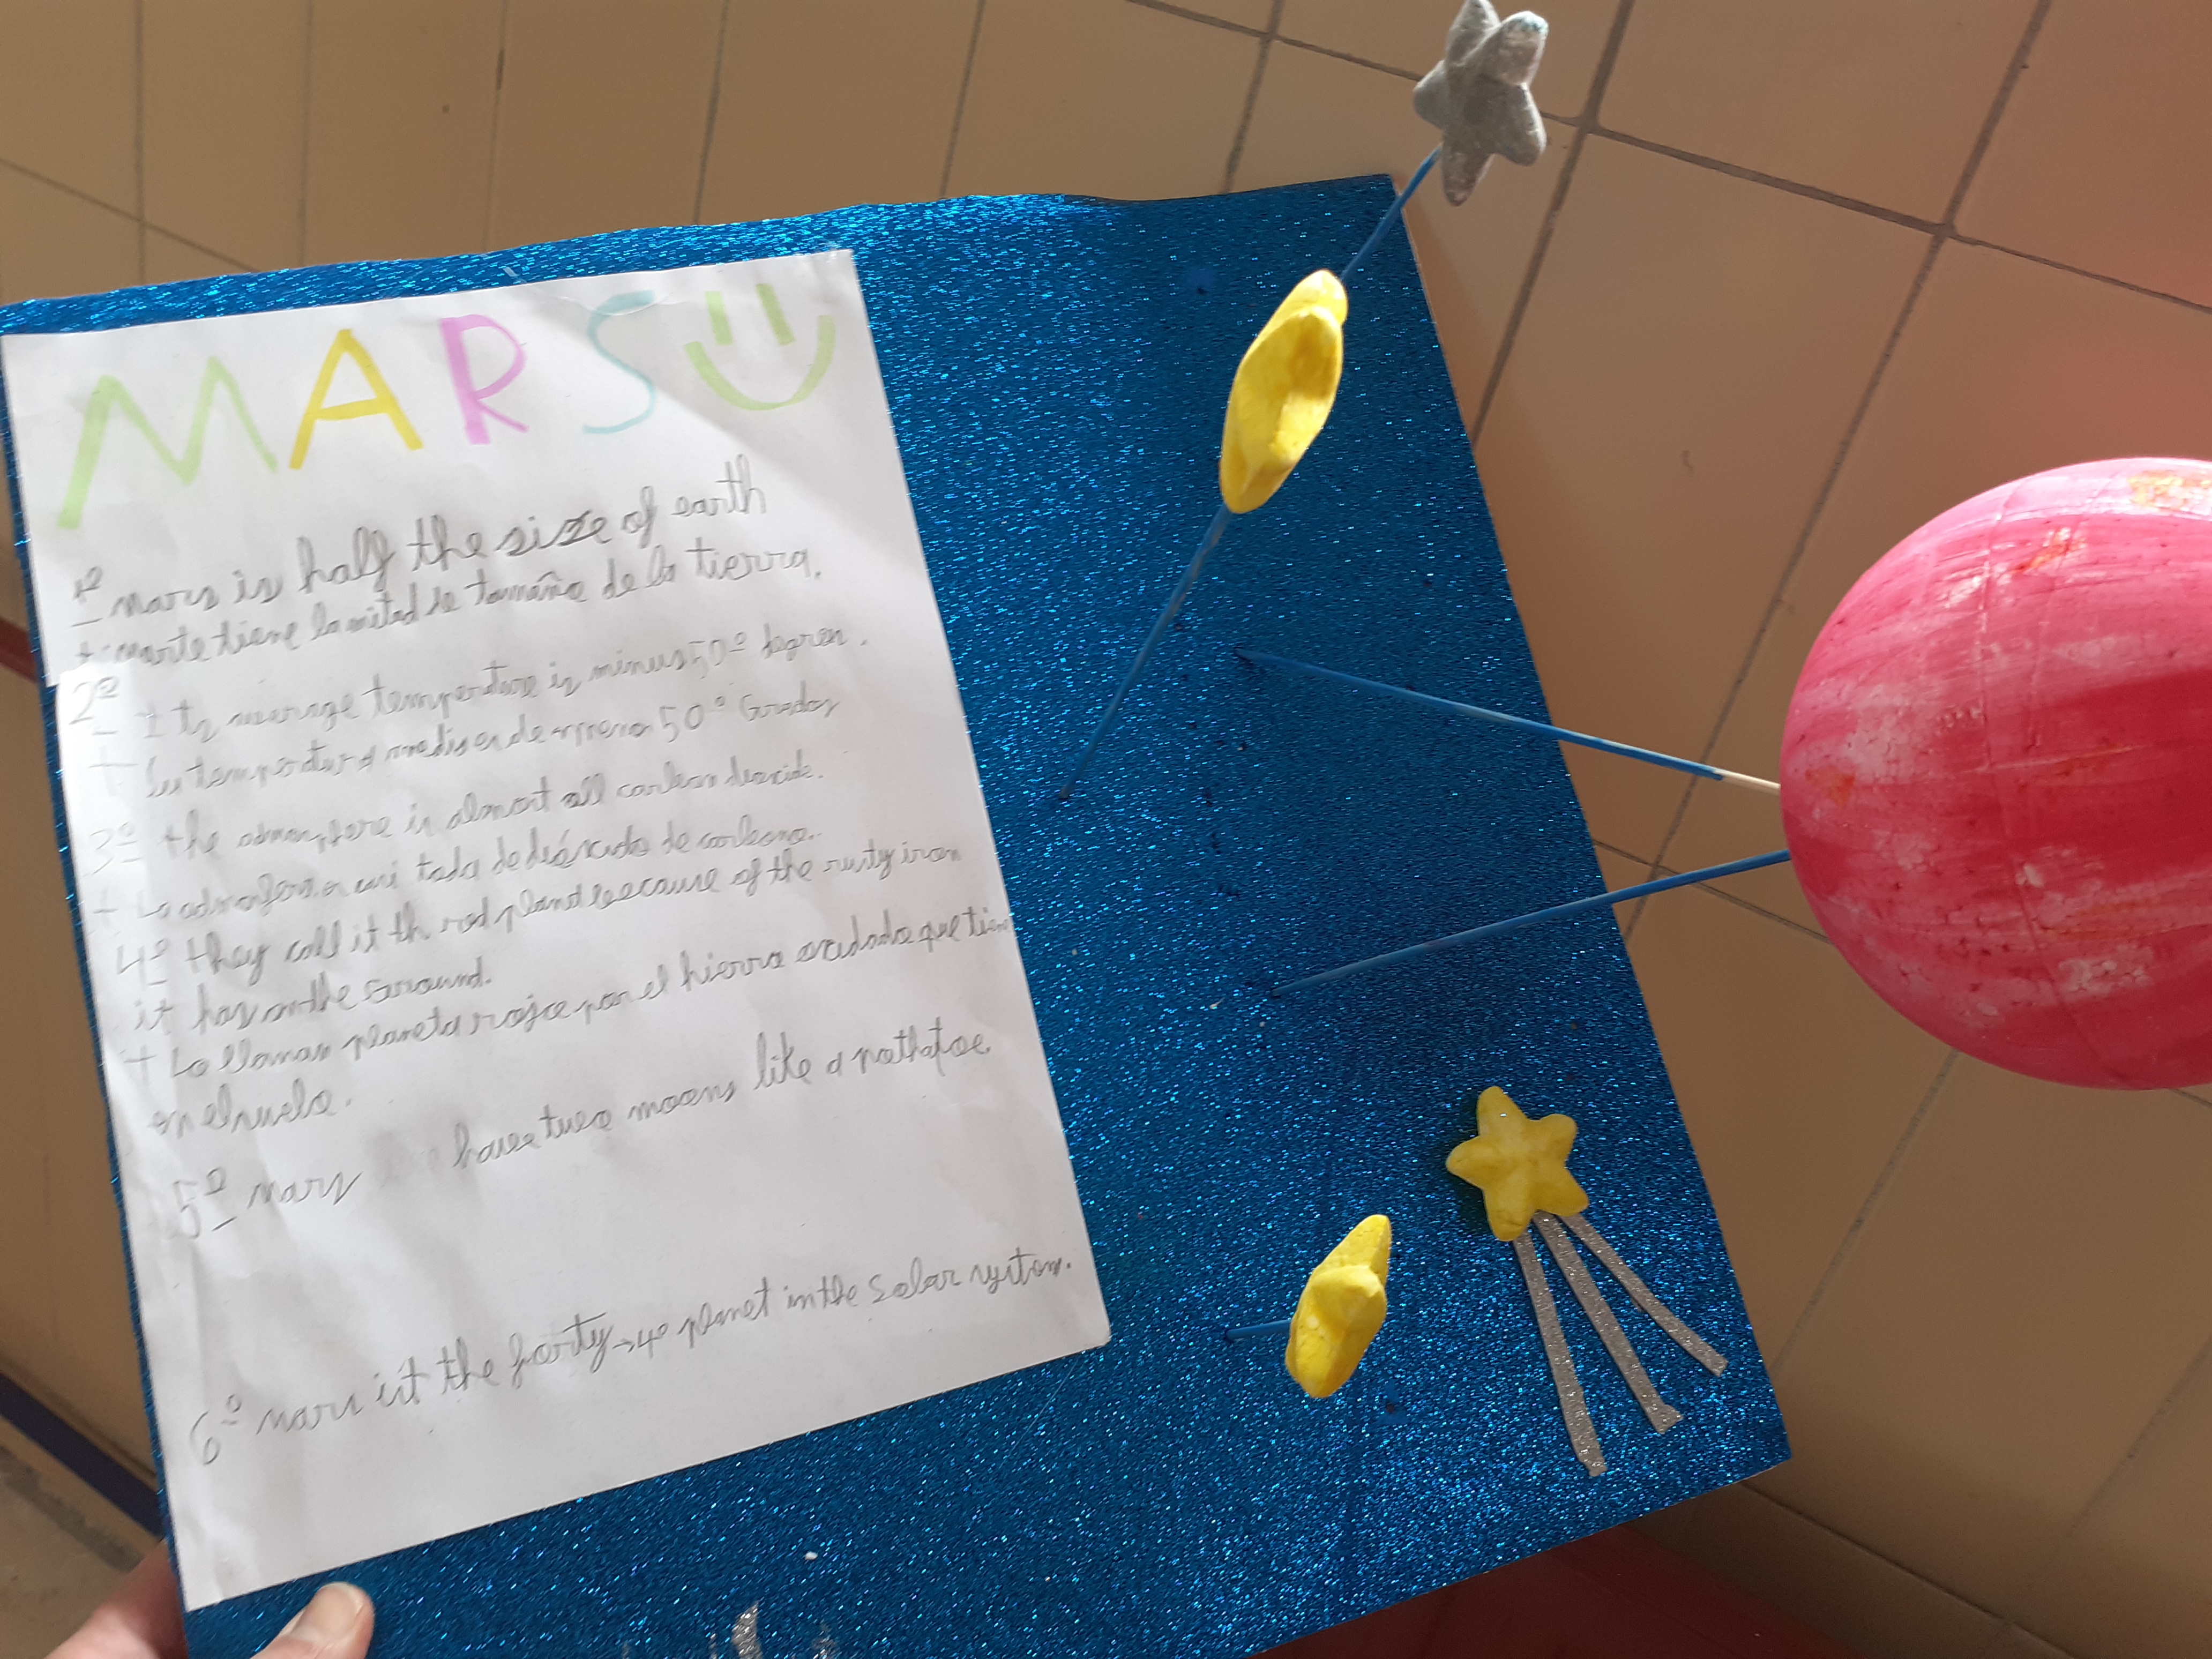 MARS
1º mars is half the size of earth
+ marte tiene la mitad de tamaño de la tierra.
2º Its average temperature is minus 50º degren.
+ Su temperatura media es de meno 50º Grados
3º the admosptere is almost all carbon deoxide.
+ La admosfera es casi toda de dióxido de carbono.
4º they call it th red planet because of the rusty iron
it has on the seround.
+ Lo llaman planeta rojo por el hierro oxidado que tien
en el suelo.
5º mars have two moons like a pothatoe
6º mars ist the forty → 4º planet in the Solar system.